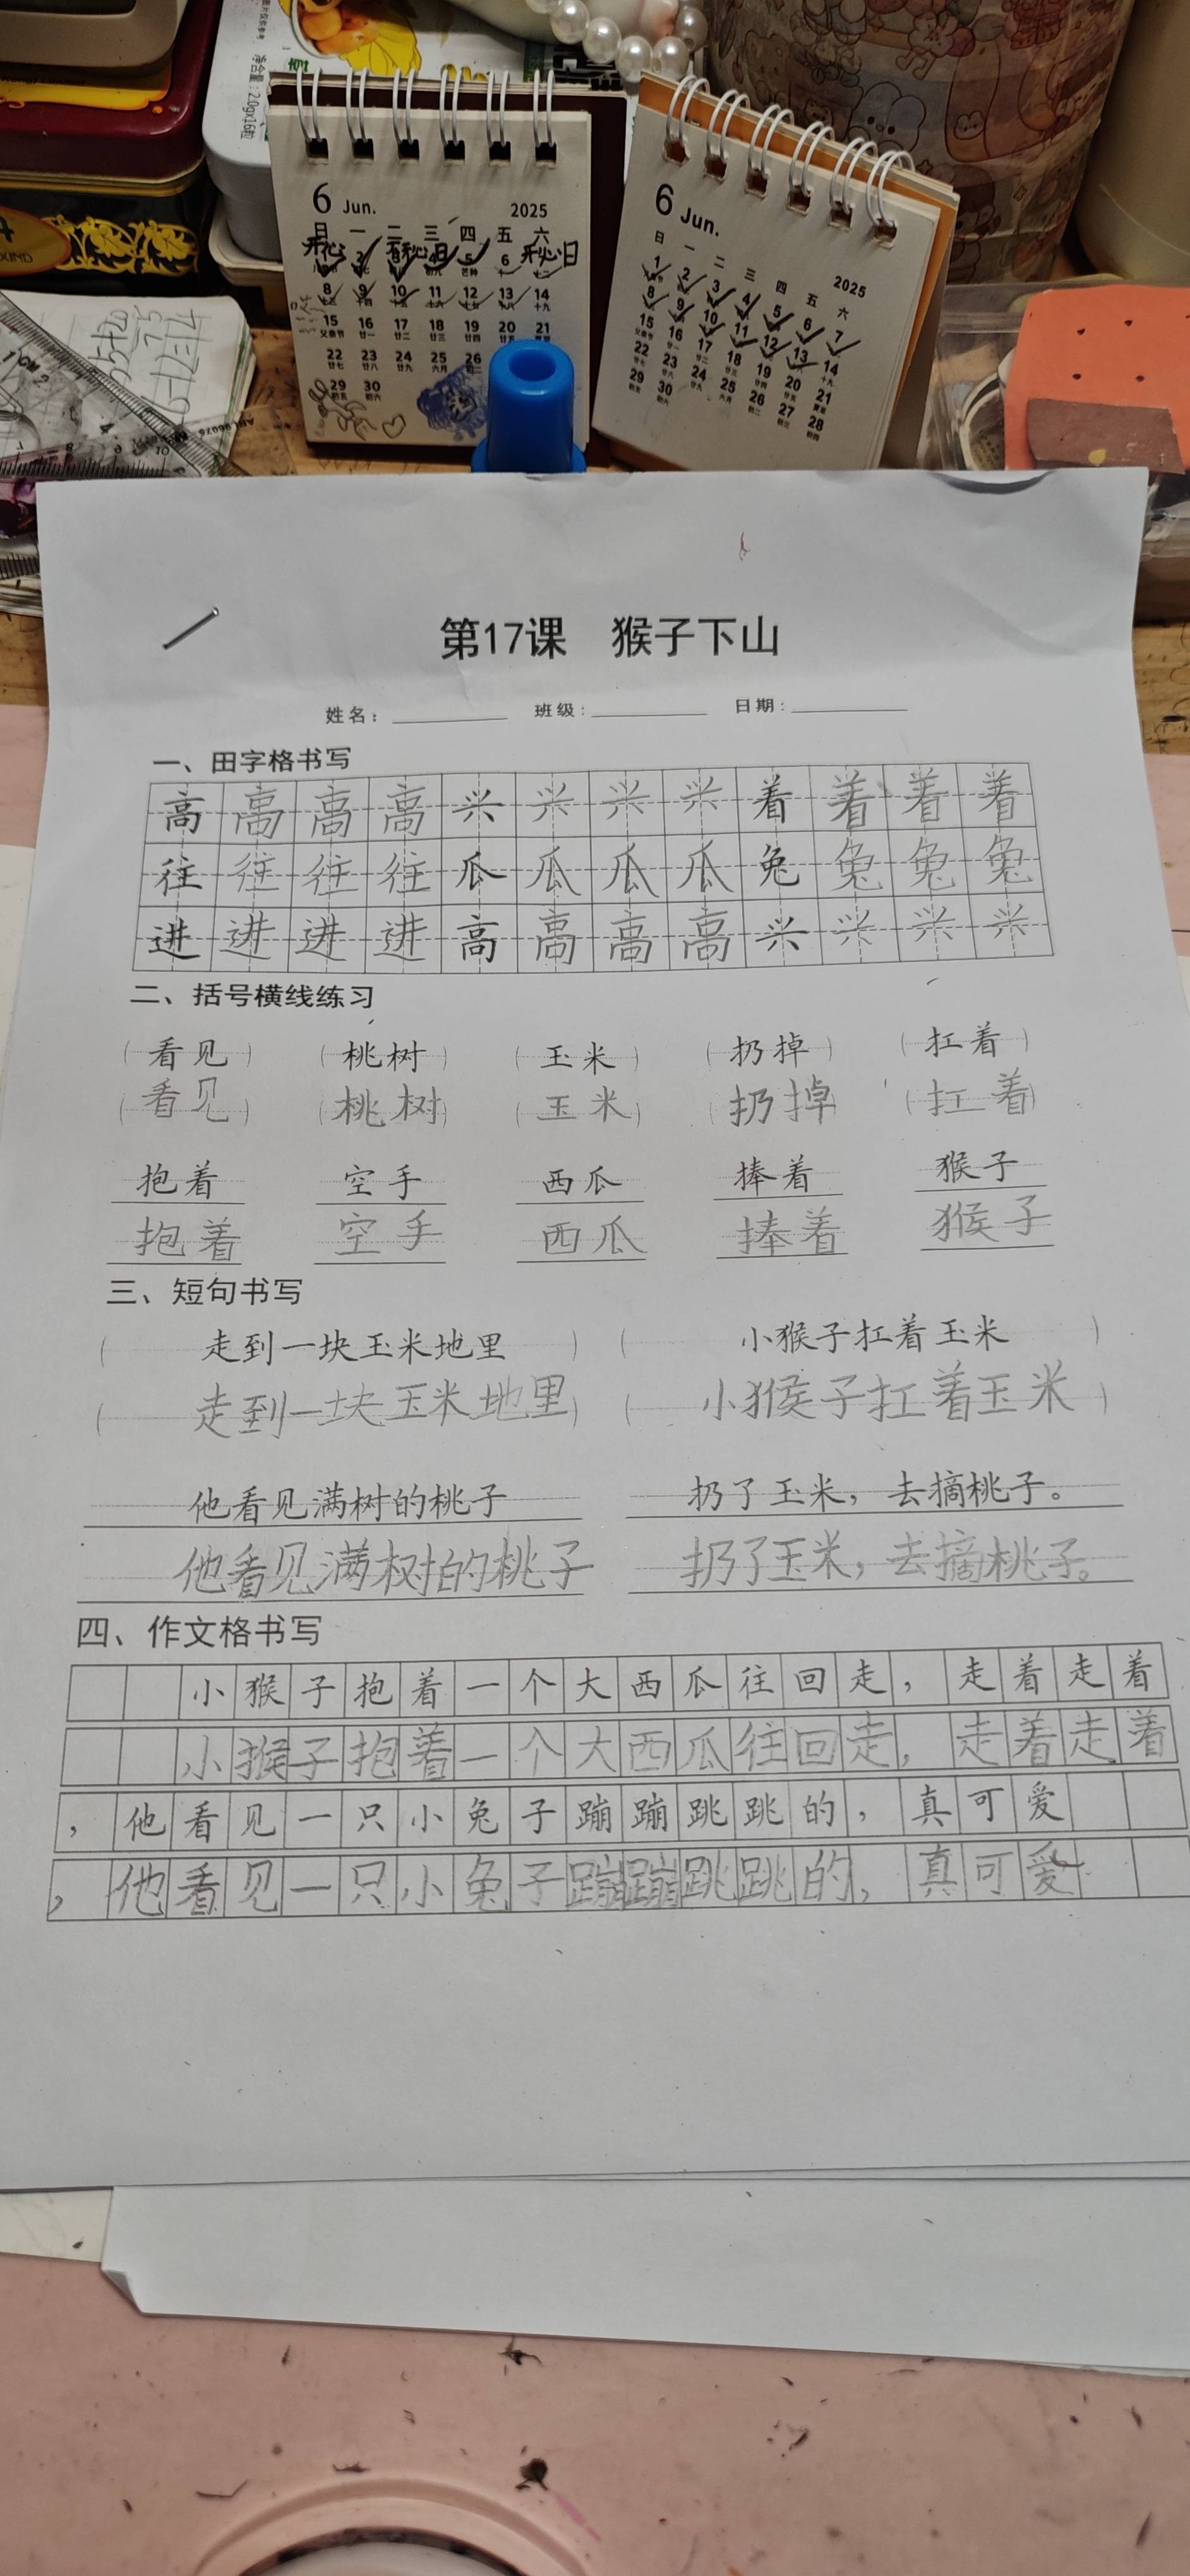 净含量：2.0gx16粒
6 Jun. 2025
日 一 二 三 四 五 六
8 9 10 11 12 13 14
15 16 17 18 19 20 21
22 23 24 25 26
29 30
6 Jun. 2025
日 一 二 三 四 五 六
1 2 3 4 5 6 7
8 9 10 11 12 13 14
15 16 17 18 19 20 21
22 23 24 25 26 27 28
29 30
第17课 猴子下山
姓名： 班级： 日期：
一、田字格书写
高 高 高 高 兴 兴 兴 兴 着 着 着 着
往 往 往 往 瓜 瓜 瓜 瓜 兔 兔 兔 兔
进 进 进 进 高 高 高 高 兴 兴 兴 兴
二、括号横线练习
（看见） （桃树） （玉米） （扔掉） （扛着）
（看见） （桃树） （玉米） （扔掉） （扛着）
抱着 空手 西瓜 捧着 猴子
抱着 空手 西瓜 捧着 猴子
三、短句书写
（走到一块玉米地里） （小猴子扛着玉米）
（走到一块玉米地里） （小猴子扛着玉米）
他看见满树的桃子 扔了玉米，去摘桃子。
他看见满树的桃子 扔了玉米，去摘桃子。
四、作文格书写
小猴子抱着一个大西瓜往回走，走着走着
小猴子抱着一个大西瓜往回走，走着走着
，他看见一只小兔子蹦蹦跳跳的，真可爱
，他看见一只小兔子蹦蹦跳跳的，真可爱